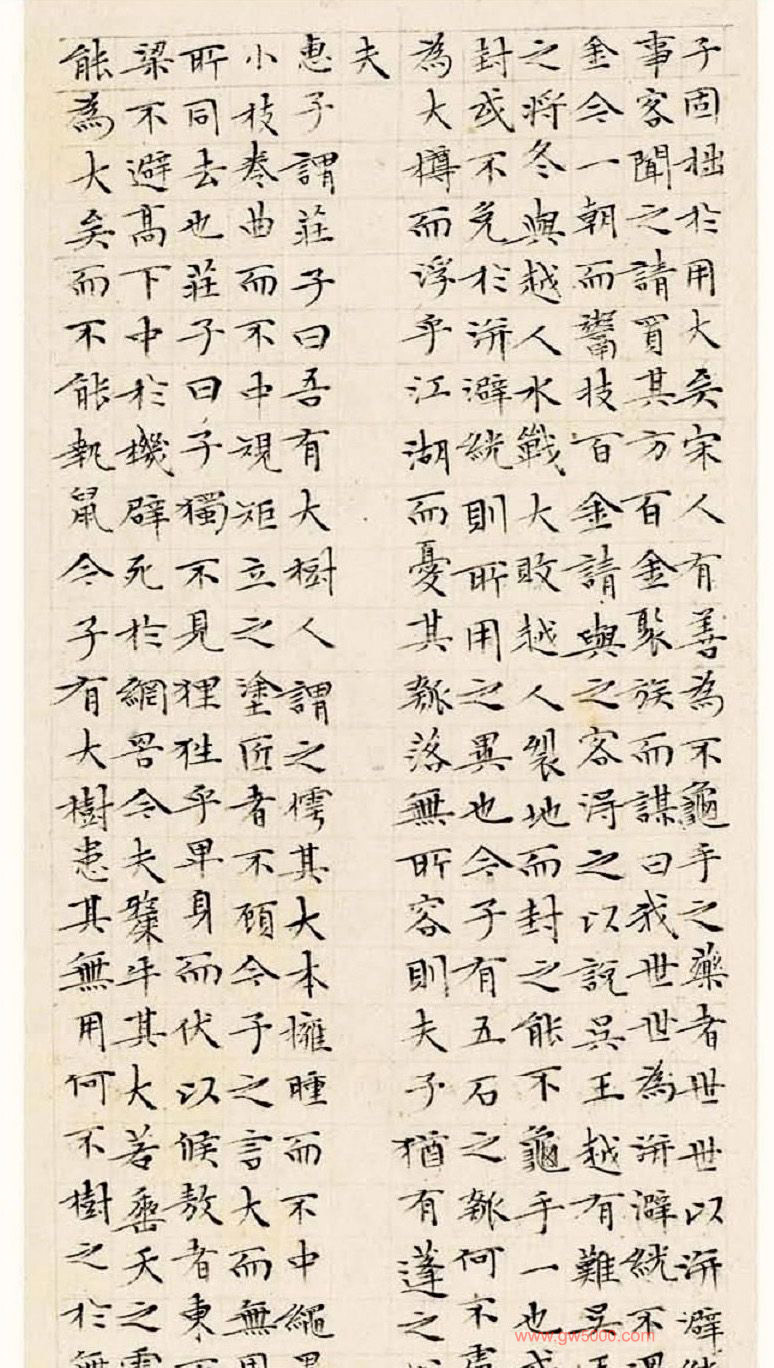 子固拙於用大矣宋人有善為不龜手之藥者世世以洴澼
事客聞之請買其方百金聚族而謀曰我世世為洴澼絖不過
金今一朝而鬻技百金請與之客得之以說吳王越有難吳王
之將冬與越人水戰大敗越人裂地而封之能不龜手一也或
封或不免於洴澼絖則所用之異也今子有五石之瓠何不慮
為大樽而浮乎江湖而憂其瓠落無所容則夫子猶有蓬之
夫
惠子謂莊子曰吾有大樹人謂之樗其大本擁腫而不中繩墨
小枝卷曲而不中規矩立之塗匠者不顧今子之言大而無用
所同去也莊子曰子獨不見狸狌乎卑身而伏以候敖者東西
梁不避高下中於機辟死於網罟今夫斄牛其大若垂天之雲
能為大矣而不能執鼠今子有大樹患其無用何不樹之於無
www.gw5000.com